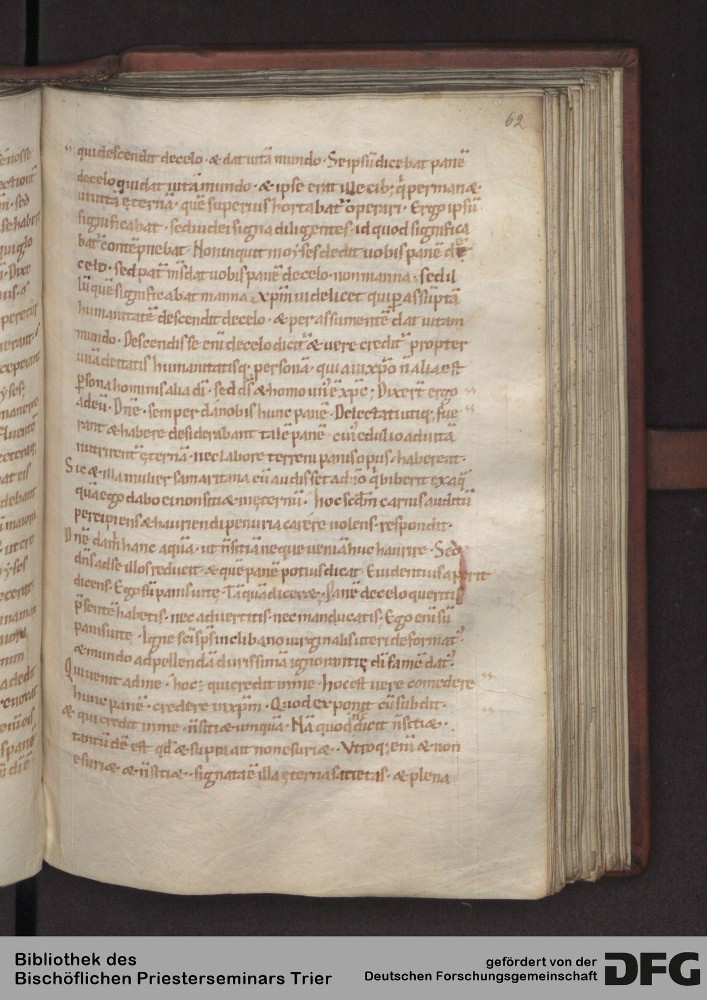 62
qui descendit decelo · & dat uitã mundo · Se ipsũ dicebat panẽ
decelo qui dat uitã mundo · & ipse erat ille cib; q̇ permanæ
inuitã ęternã · quẽ superius hortabat̃ operari · Ergo ipsũ
significabat · sed uidei signa diligentes · id quod significa
bat̃ contẽpnebat · Non inquit moyses dedit uobis panẽ dẽ
celo · sed pat̃ m̃s dat uobis panẽ decelo · non manna · sed il
lũ quẽ significabat manna · xp̃m uidelicet qui p̱ assũptã
humanitatẽ descendit decelo · & per assumentẽ dat uitam
mundo · Descendisse eni decelo dicit̃ & uere credit̃ propter
unã deitatis humanitatisq; personã · quia in xp̃o ñ alia est
p̱sona hominis alia dĩ · sed d̃s & homo un' ẽ xp̃c; Dixerr̃ ergo
adeũ · Dñe · semper da nobis hunc panẽ · Delectati utiq; fue
rant & habere desiderabant talẽ panẽ cui' edulio ad uitã
nutrirent̃ ęternã · nec labore terreni panis opus · haberent ·
Sic & illa mulier samaritana cũ audisset ad̃no q̇ biberit ex aq̃
quã ego dabo ei non sitiæ in ęternũ · hoc sc̃dm carnis auditũ
percipiens & hauriendi penuria carere uolens · respondit ·
Dñe da m̃ hanc aquã · ut ñ sitiã neque ueniã huc haurire · Sed
dñs ad se illos reducit · & quẽ panẽ potius dicat · Euidentius aperit
dicens · Ego sũ panis uitę · Tãquã diceræ · Panẽ decelo queritis
p̃sentẽ habetis · nec aduertitis · nec manducatis · Ego eni sũ
panis uitę · Igne sc̃i sp̃s in clibano uirginalis uteri deformat' ·
& mundo ad pellendã durissimã ignominię dĩ famẽ dat' ·
Qui uenit ad me · hoc ; qui credit in me · hoc est uere comedere
hunc panẽ · credere in xp̃m · Quod exponit cũ subdit ·
& qui credit in me · ñ sitiæ umquã · Nã quod dicit ñ sitiæ ·
tantũdẽ est qd̃ & supra ait non esuriæ · Vtroq; eni & non
esuriæ · & ñ sitiæ · signata ẽ illa ęterna satietas · & plena
Bibliothek des
Bischöflichen Priesterseminars Trier
gefördert von der
Deutschen Forschungsgemeinschaft
DFG